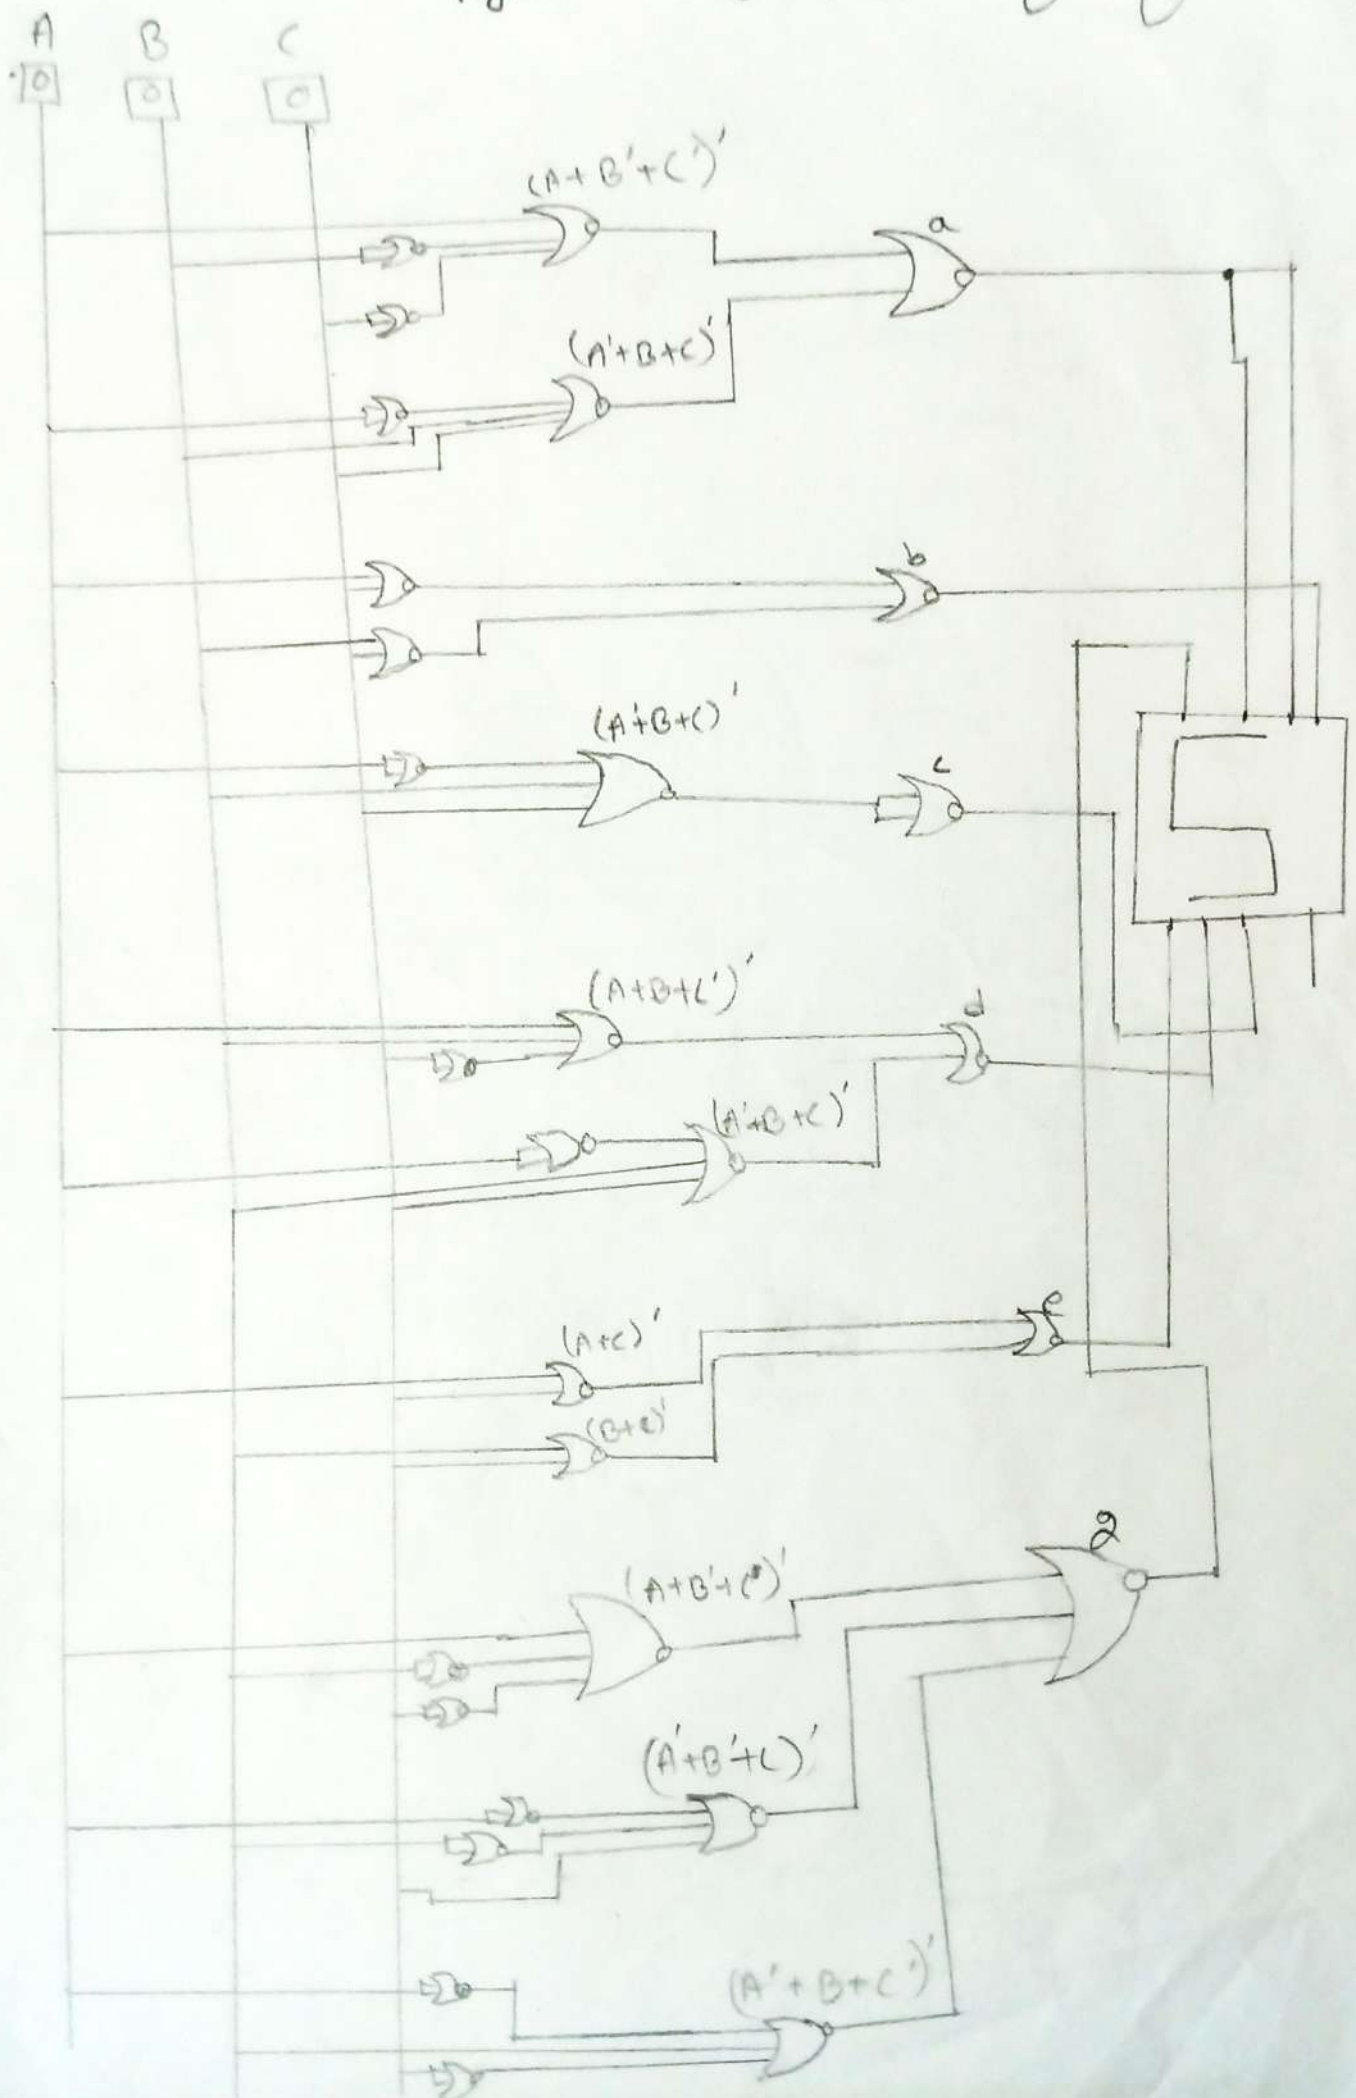 A B C
0 0 0
(A+B'+C')'
a
(A'+B+C)'
b
(A'+B+C)'
c
(A+B+C')'
d
(A'+B+C)'
(A+C)'
e
(B+C)'
(A+B'+C')'
g
(A'+B'+C)'
(A'+B+C')'